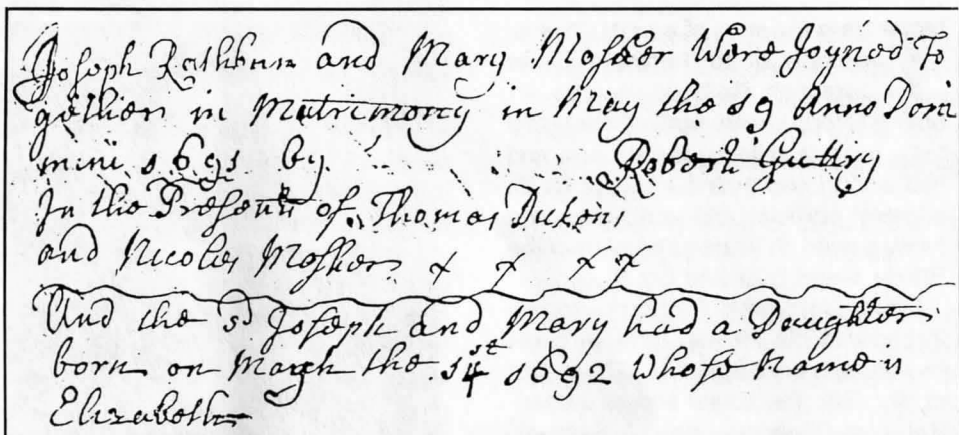 Joseph Rathbun and Mary Mosher Were Joyned To
gether in Matrimony in May the 19 Anno Domi
mini 1691 by Robert Guttry
In the Presents of Thomas Dickens
and Nicolas Mosher x x x x
And the sd Joseph and Mary had a Daughter
born on March the 14st 1692 Whose Name is
Elizabeth